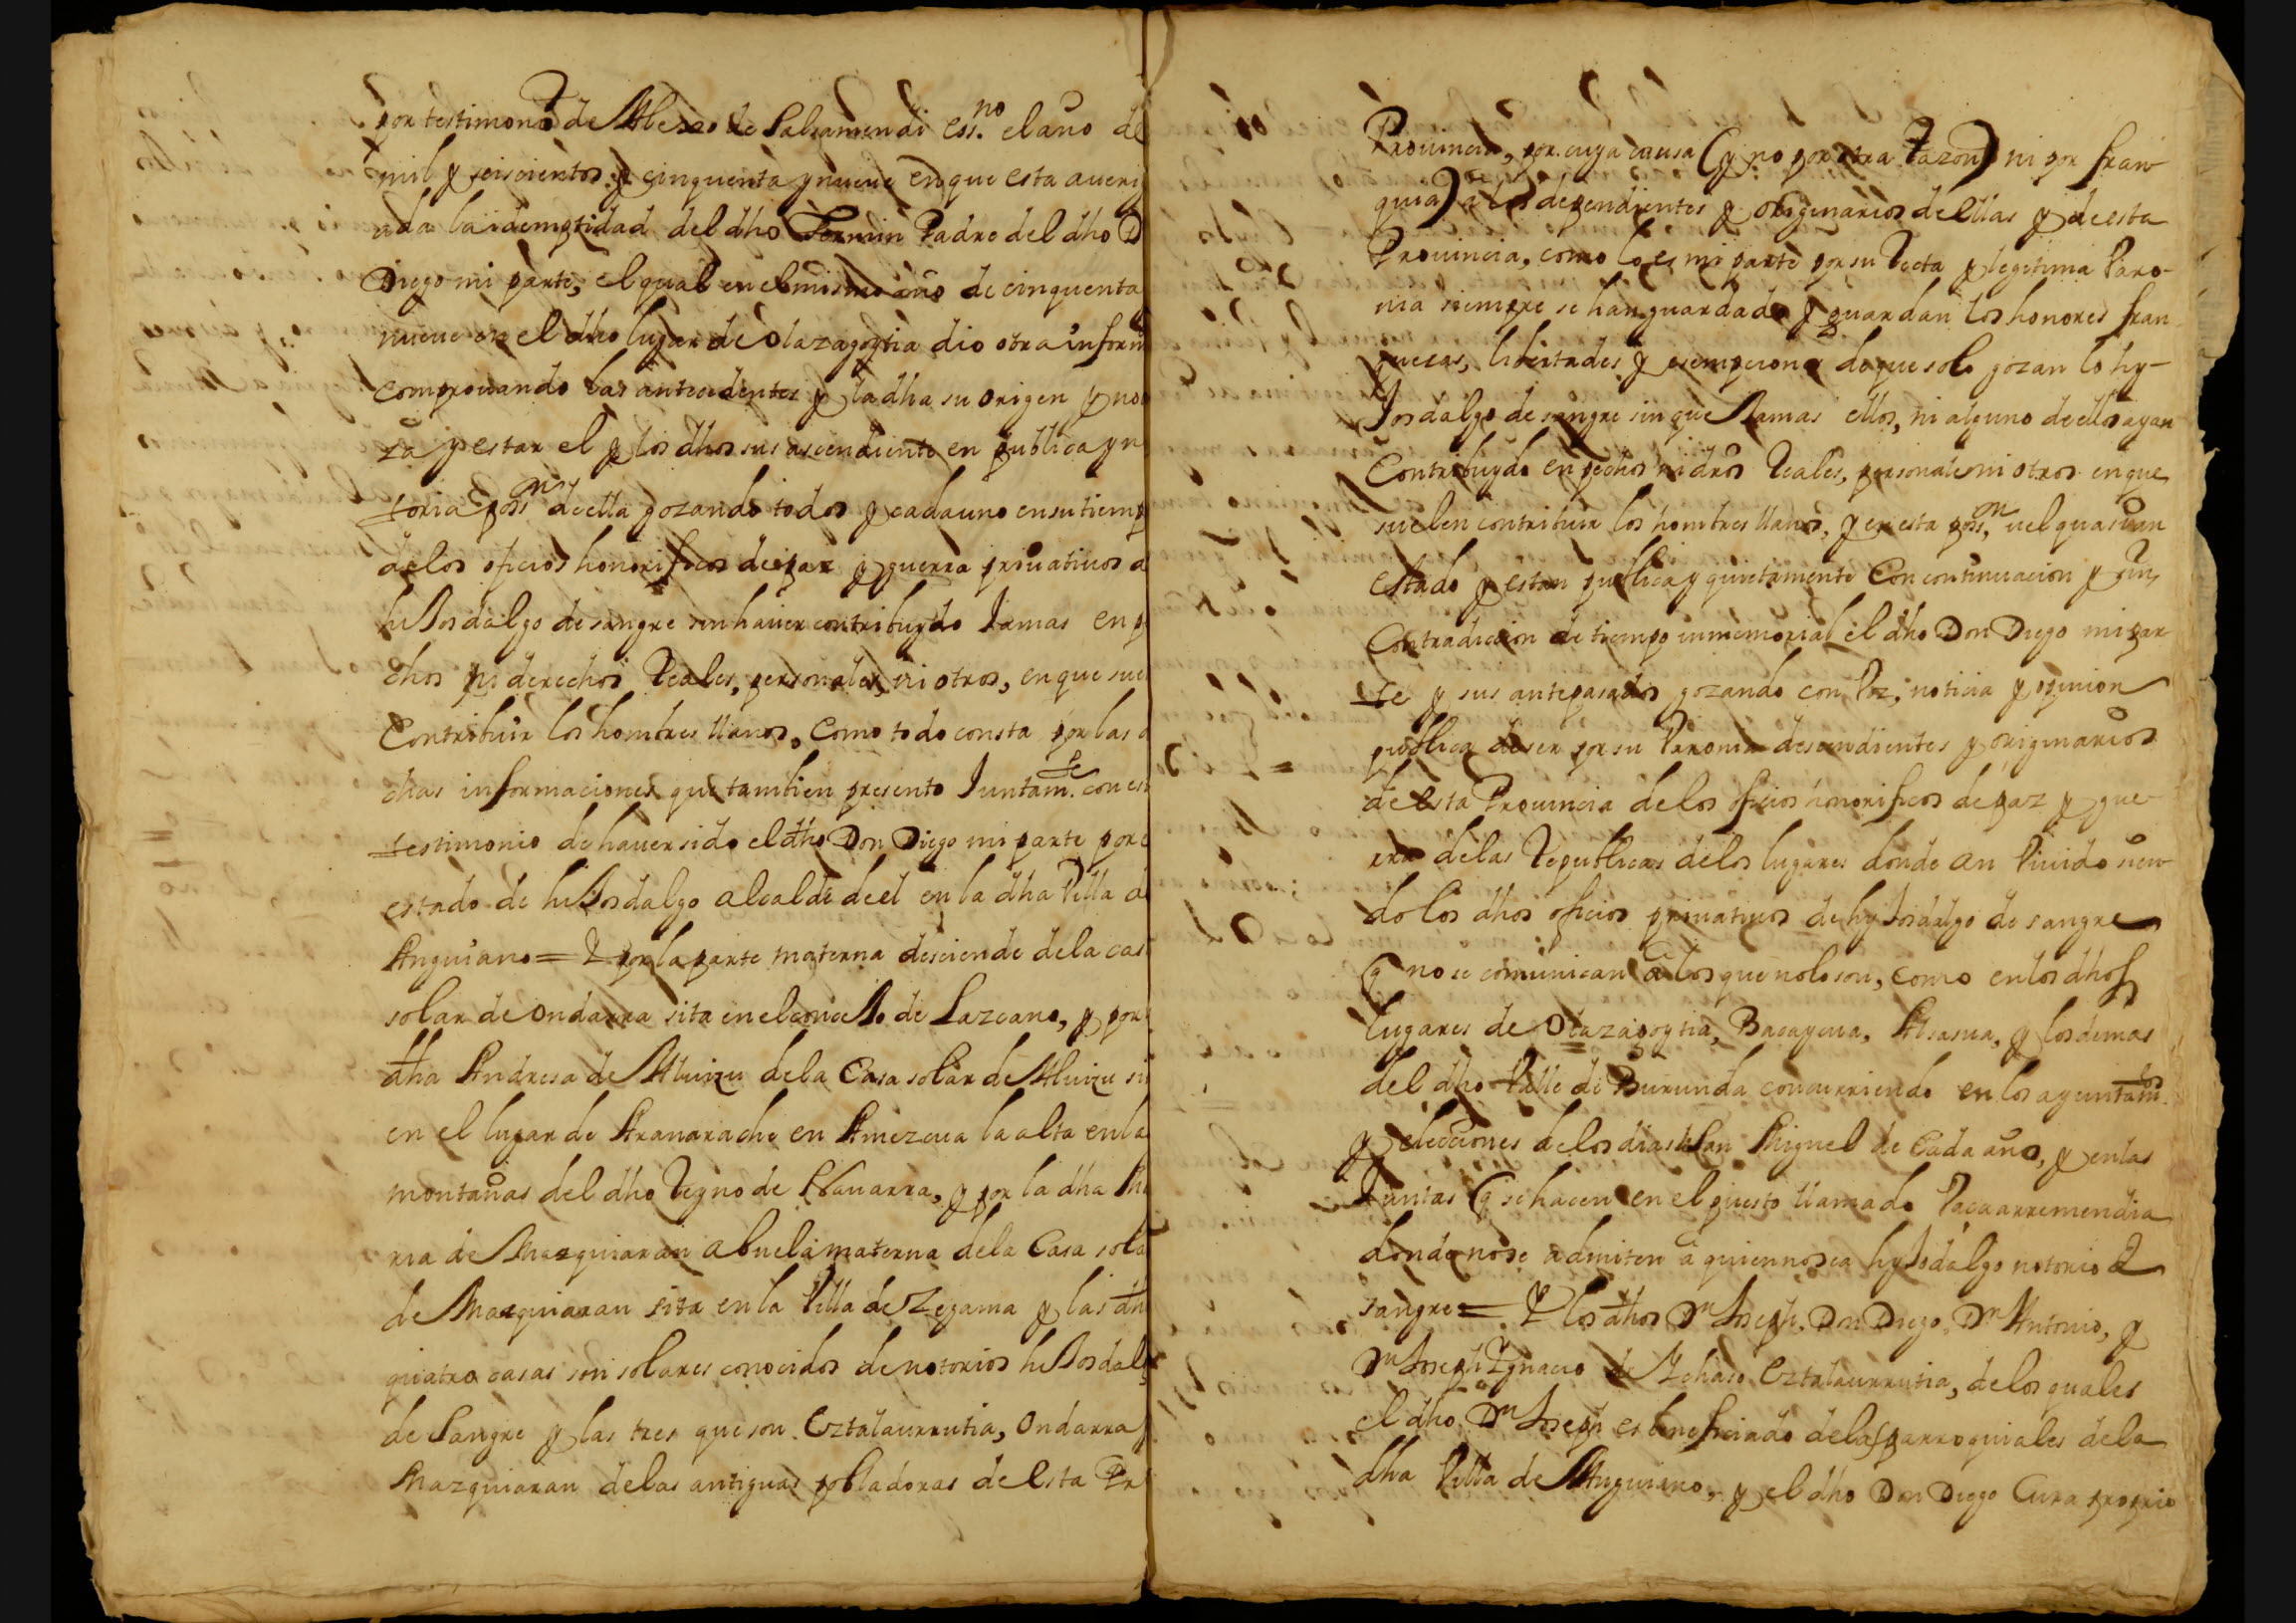 por testimonio de Alexo de Salsamendi ess.no el año de
mil y seiscientos y cinquenta y nueve en que esta averi
ada la idemptidad del dho Fermin Padre del dho D
Diego mi parte, el qual en el mismo año de cinquenta
nueve en el dho lugar de olazagoytia dio otra inform
comprouando las antecedentes y la dha su origen y no
za y estar el y los dhos sus ascendiente en publica y n
toria poss.n de ella gozando todos y cada uno en su tiemp
de los oficios honorificos de paz y guerra priuatiuos d
hiJosdalgo de sangre sin hauer contribuydo Jamas en p
chos ni derechos Reales, personales, ni otros, en que sue
Contribuir los hombres llanos, Como todo consta por las d
chas informaciones que tambien presento Juntam.te con es
testimonio de hauer sido el dho Don Diego mi parte por e
estado de hiJosdalgo alcalde de el en la dha Villa d
Anguiano = Y por la parte materna desciende de la cas
solar de ondarra sita en el conceJo de Lazcano, y por
dha Andresa de Aluizu de la Casa solar de Aluizu si
en el lugar de Aranarache en Amezcua la alta en la
montañas del dho Reyno de Nauarra, y por la dha Ma
ria de Mazquiaran abuela materna de la Casa sola
de Mazquiaran sita en la Villa de Zegama y las dh
quatro casas son solares conocidos de notorios hiJosdalg
de Sangre y las tres que son Eztalaurrutia, Ondarra
Mazquiaran de las antiguas pobladoras de Esta Pr
Prouincia, por cuya causa (y no por otra razon) ni por fran
quia) a los dependientes y originarios de Ellas y de esta
Prouincia, como lo es mi parte por su recta y legitima Varo-
nia siempre se han guardado y guardan los honores fran
quezas, libertades y esempciones de que solo gozan lo hy-
Josdalgo de sangre sin que Jamas ellos, ni alguno de ellos ayan
Contribuydo en pechos ni dros Reales, personales ni otros en que
suelen contribuir los hombres llanos, y en esta poss.n vel quasi an
estado y estan publica y quietamente Con continuacion y sin
Contradicion de tiempo inmemorial el dho Don Diego mi par
te y sus antepasados gozando con voz, noticia y opinion
publica de ser por su Varonia descendientes y originarios
de Esta Prouincia de los oficios honorificos de paz y gue-
rra de las Republicas de los lugares donde an viuido sien
do los dhos oficios priuatiuos de hyJosdalgo de sangre
q no se comunican a los que no lo son, como en los dhos
lugares de Olazagoytia, Bacaycua, Alsasua, y los demas
del dho Valle de Burunda concurriendo en los ayuntam.tos
y elecciones de los dias de San Miguel de Cada año, y en las
Juntas q se hacen en el puesto llamado Vacaarremendia
donde no se admiten a quien no sea hyJodalgo notorio de
sangre = Y los dhos Dn Joseph, Don Diego, Dn Antonio, y
Dn Joseph Ygnacio de Ychaso Eztalaurrutia, de los quales
el dho Dn Joseph es beneficiado de las parroquiales de la
dha Villa de Anguiano, y el dho Don Diego Cura proprio